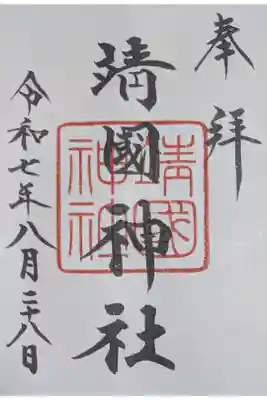 奉拝
靖國神社
靖國
神社
令和七年八月二十八日